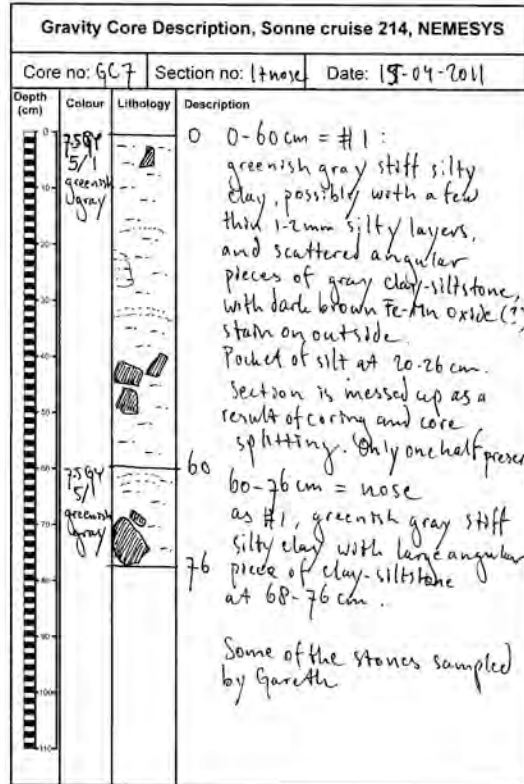 Gravity Core Description, Sonne cruise 214, NEMESYS
Core no: GC7 Section no: 1+nose Date: 15-04-2011
Depth (cm) Colour Lithology Description
0
10
20
30
40
50
60
70
80
90
100
110
7.5GY
5/1
greenish
gray
7.5GY
5/1
greenish
gray
0 0-60cm = #1:
greenish gray stiff silty
clay, possibly with a few
thin 1-2mm silty layers,
and scattered angular
pieces of gray clay-siltstone,
with dark brown Fe-Mn oxide (??
stain on outside.
Pocket of silt at 20-26 cm.
Section is messed up as a
result of coring and core
splitting. Only one half presen
60
60-76cm = nose
as #1, greenish gray stiff
silty clay with large angular
76 piece of clay-siltstone
at 68-76 cm.
Some of the stones sampled
by Gareth